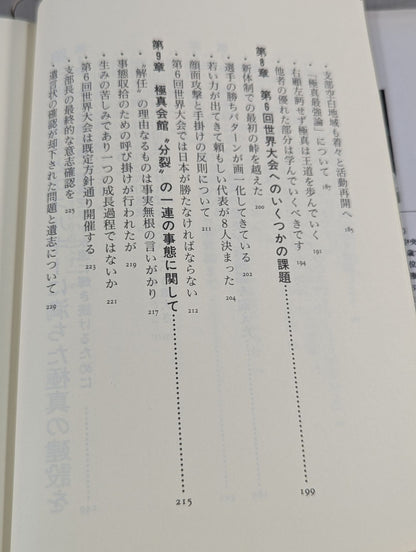 支部空白地域も着々と活動再開へ 185
「極真最強論」について 187
右顧左眄せず極真は王道を歩んでいく 191
他者の優れた部分は学んでいくべきです 194
第8章 第6回世界大会へのいくつかの課題………… 199
新体制での最初の峠を越えた 200
選手の勝ちパターンが画一化してきている 202
若い力が出てきて頼もしい代表が8人決まった 204
顔面攻撃と手掛けの反則について 211
第6回世界大会では日本が勝たなければならない 212
第9章 極真会館〝分裂〟の一連の事態に関して………… 215
〝解任〟の理由なるものは事実無根の言いがかり 217
事態収拾のための呼び掛けが行われたが 219
生みの苦しみであり一つの成長過程ではないか 221
第6回世界大会は既定方針通り開催する 223
支部長の最終的な意志確認を 225
遺言状の確認が却下された問題と遺志について 229